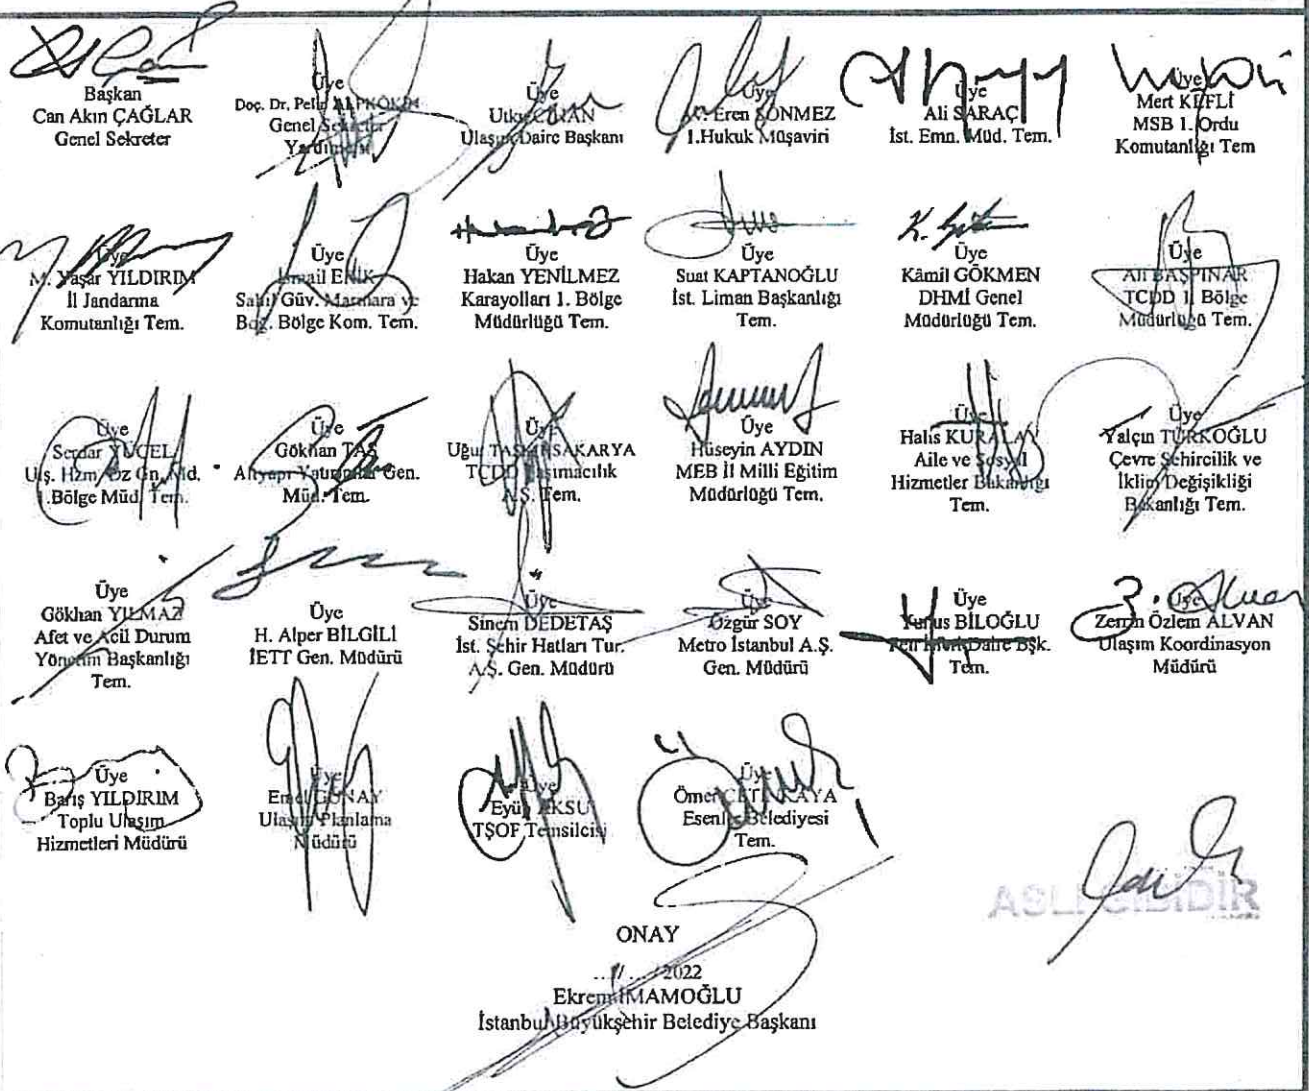 Başkan
Can Akın ÇAĞLAR
Genel Sekreter
Üye
Doç. Dr. Pelin ALPKÖKİN
Genel Sekreter
Yardımcısı
Üye
Utku CİHAN
Ulaşım Daire Başkanı
Üye
Av. Eren SÖNMEZ
1.Hukuk Müşaviri
Üye
Ali SARAÇ
İst. Emn. Müd. Tem.
Üye
Mert KEFLİ
MSB 1. Ordu
Komutanlığı Tem
Üye
M. Yaşar YILDIRIM
İl Jandarma
Komutanlığı Tem.
Üye
İsmail ENİK
Sahil Güv. Marmara ve
Boğ. Bölge Kom. Tem.
Üye
Hakan YENİLMEZ
Karayolları 1. Bölge
Müdürlüğü Tem.
Üye
Suat KAPTANOĞLU
İst. Liman Başkanlığı
Tem.
Üye
Kâmil GÖKMEN
DHMİ Genel
Müdürlüğü Tem.
Üye
Ali BAŞPINAR
TCDD 1. Bölge
Müdürlüğü Tem.
Üye
Serdar YÜCEL
Ulş. Hzm. Dz Gn. Md.
1.Bölge Müd. Tem.
Üye
Gökhan TAŞ
Altyapı Yatırımlar Gen.
Müd. Tem.
Üye
Uğur
TCDD Taşımacılık
A.Ş. Tem.
Üye
Hüseyin AYDIN
MEB İl Milli Eğitim
Müdürlüğü Tem.
Üye
Halis KURALAY
Aile ve Sosyal
Hizmetler Bakanlığı
Tem.
Üye
Yalçın TÜRKOĞLU
Çevre Şehircilik ve
İklim Değişikliği
Bakanlığı Tem.
Üye
Gökhan YILMAZ
Afet ve Acil Durum
Yönetim Başkanlığı
Tem.
Üye
H. Alper BİLGİLİ
İETT Gen. Müdürü
Üye
Sinem DEDETAŞ
İst. Şehir Hatları Tur.
A.Ş. Gen. Müdürü
Üye
Özgür SOY
Metro İstanbul A.Ş.
Gen. Müdürü
Üye
Yunus BİLOĞLU
Daire Bşk.
Tem.
Üye
Zerrin Özlem ALVAN
Ulaşım Koordinasyon
Müdürü
Üye
Barış YILDIRIM
Toplu Ulaşım
Hizmetleri Müdürü
Üye
Emel GÜNAY
Ulaşım Planlama
Müdürü
Üye
Eyüp AKSU
TŞOF Temsilcisi
Üye
Ömer ÇETİNKAYA
Esenler Belediyesi
Tem.
ASLI GİBİDİR
ONAY
../.../2022
Ekrem İMAMOĞLU
İstanbul Büyükşehir Belediye Başkanı